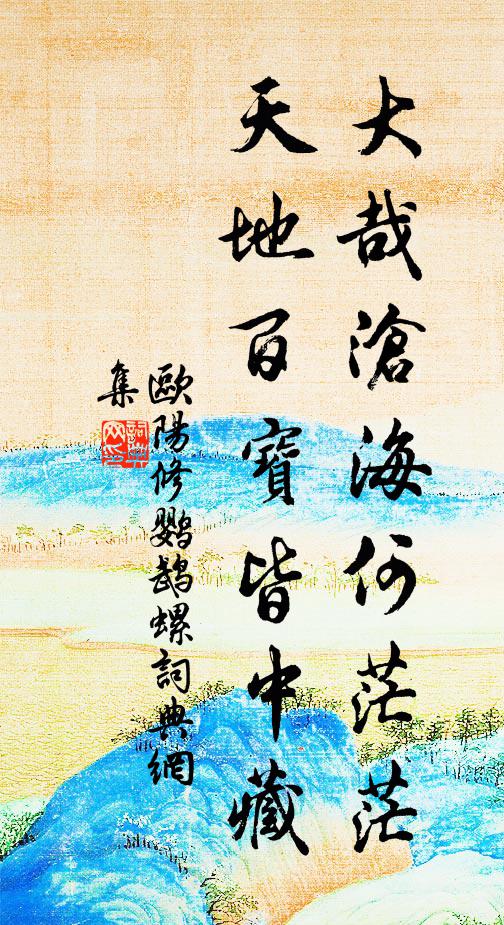 大哉滄海何茫茫
天地百寶皆中藏
歐陽修鸚鵡螺詞典網
集